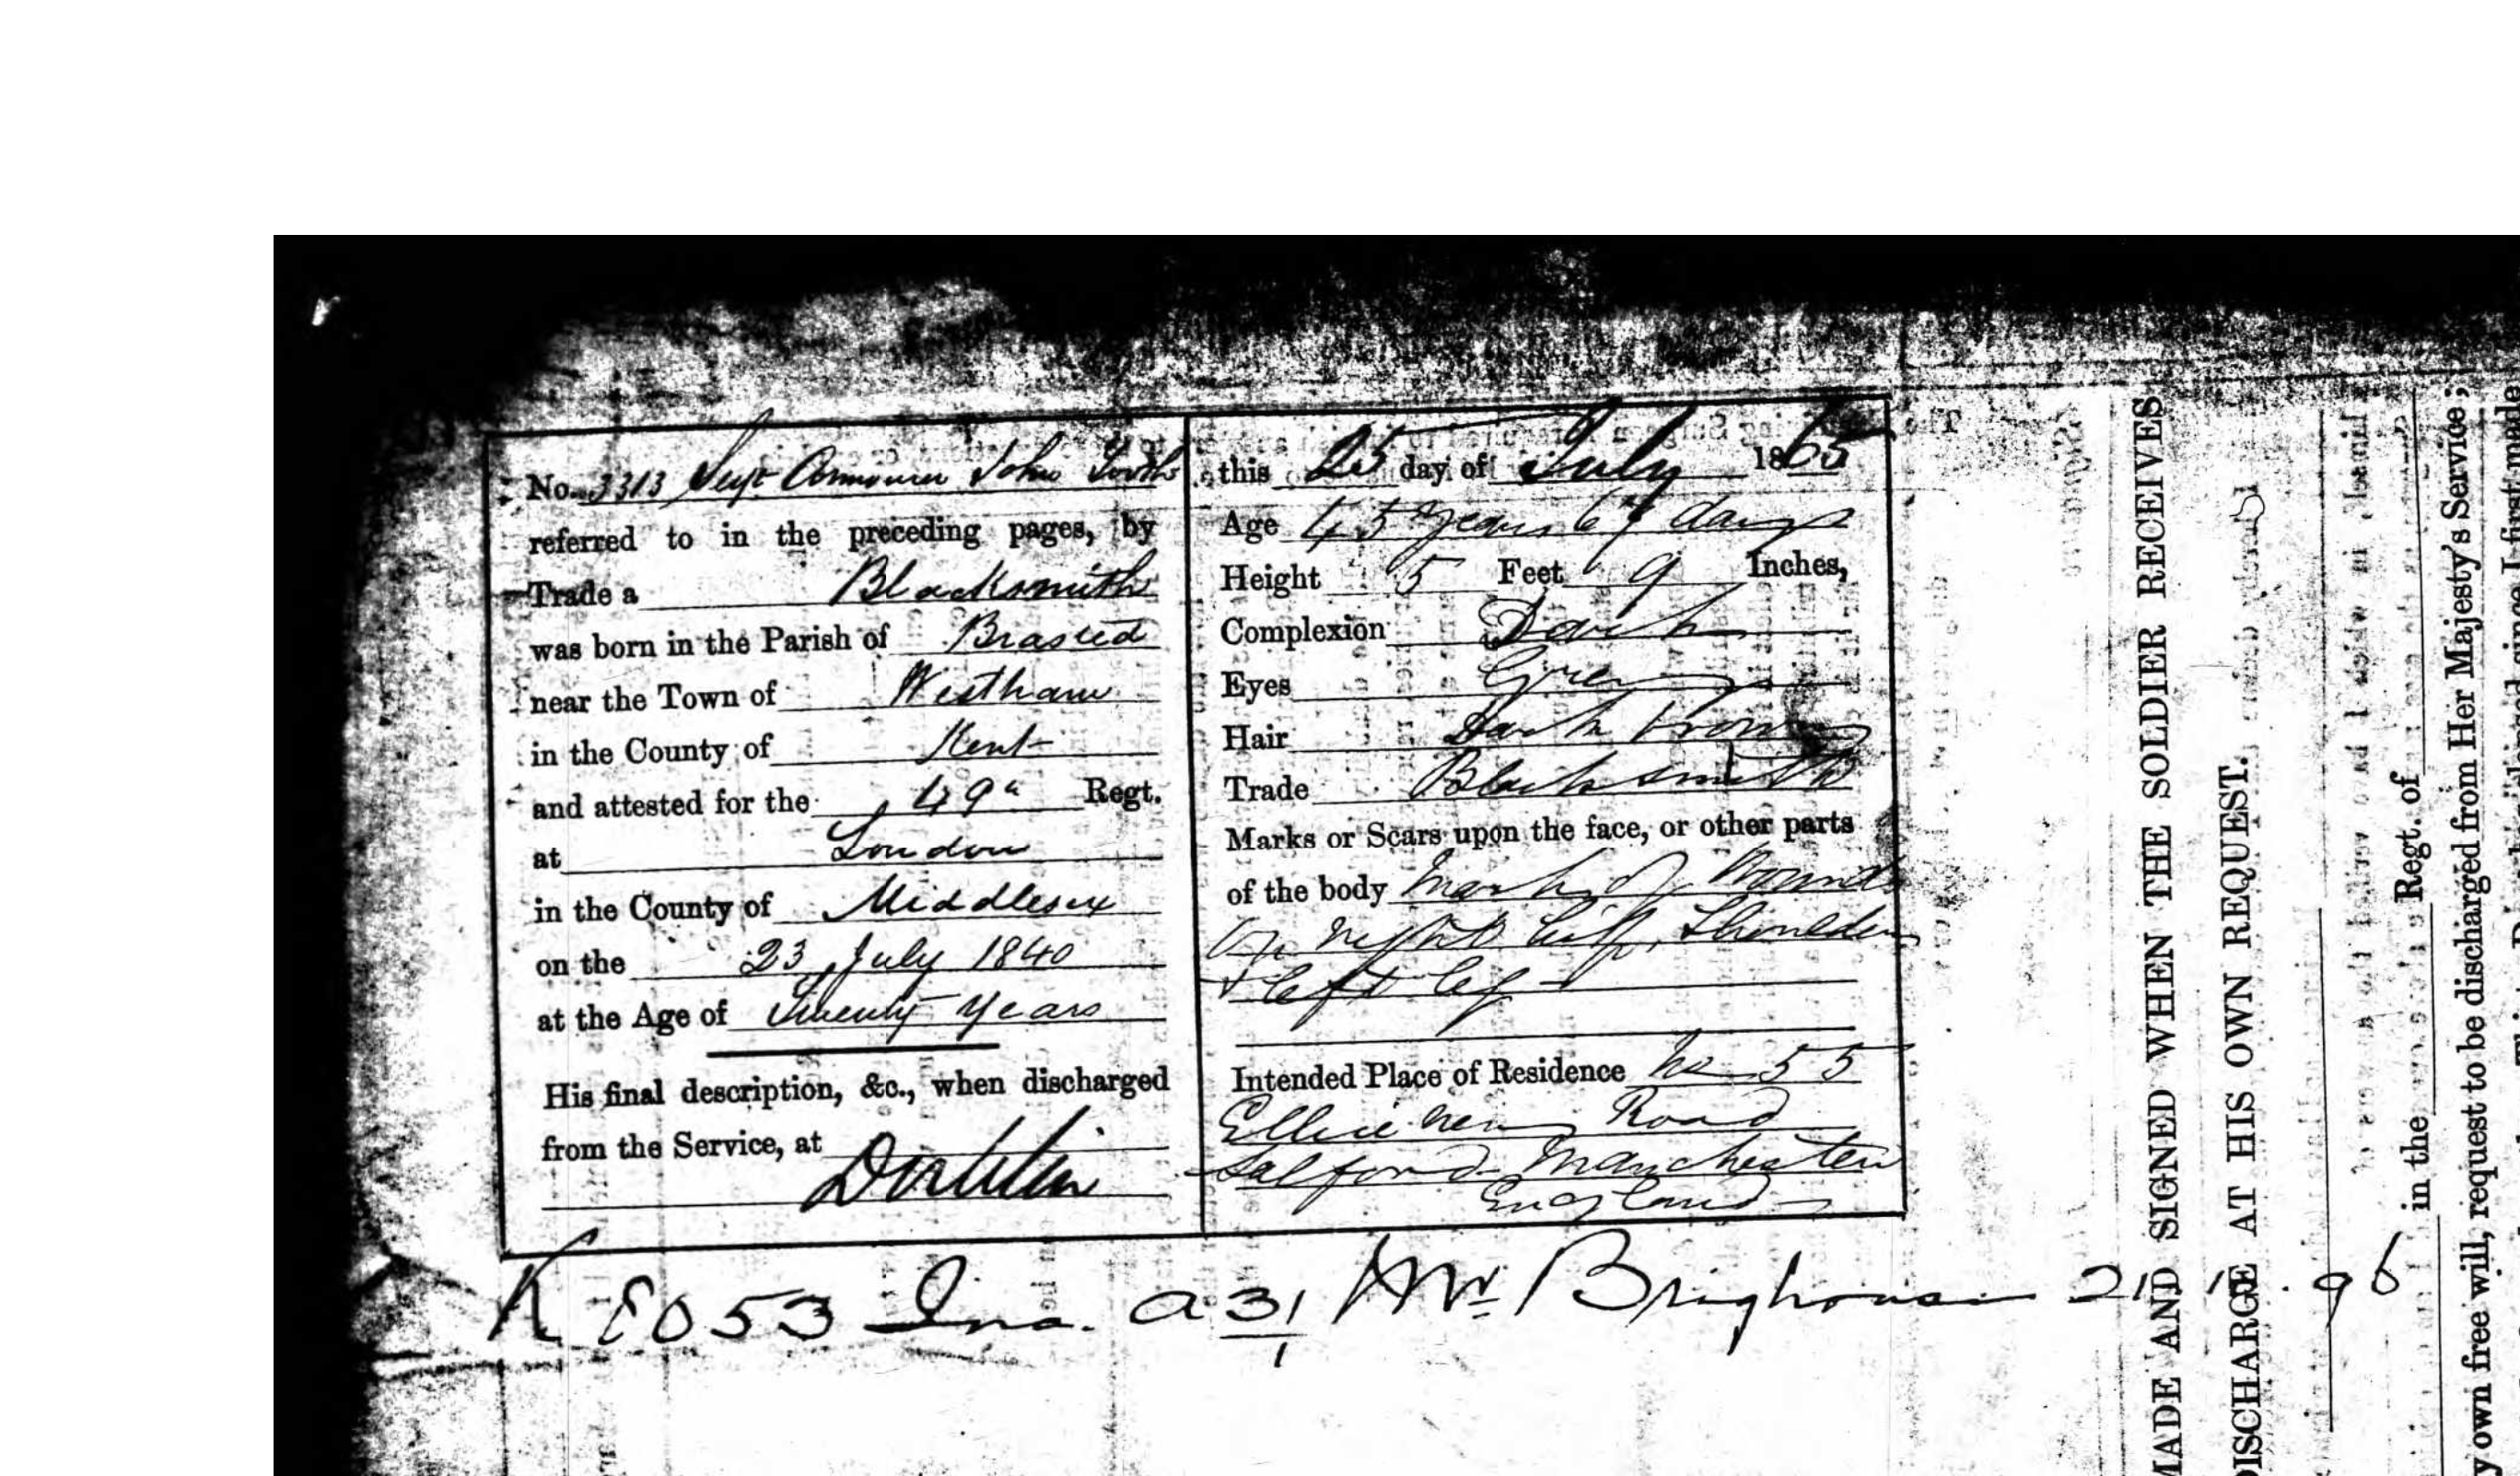 No. 3313 Sergt Armourer John
referred to in the preceding pages, by
Trade a Blacksmith
was born in the Parish of Brasted
near the Town of Westham
in the County of Kent
and attested for the 49th Regt.
at London
in the County of Middlesex
on the 23 July 1840
at the Age of Twenty Years
His final description, &c., when discharged
from the Service, at
Dublin
this 25 day of July 1865
Age 45 years 67 days
Height 5 Feet 9 Inches,
Complexion Dark
Eyes Grey
Hair Dark brown
Trade Blacksmith
Marks or Scars upon the face, or other parts
of the body Marks of Wounds
on right hip, Shoulder
& left leg
Intended Place of Residence No 55
New Road
Salford Manchester
England
K 8053 a 31/1 Mr Brighouse 21 . 1 . 96
MADE AND SIGNED WHEN THE SOLDIER RECEIVES
DISCHARGE AT HIS OWN REQUEST.
in the Regt. of
y own free will, request to be discharged from Her Majesty's Service ;